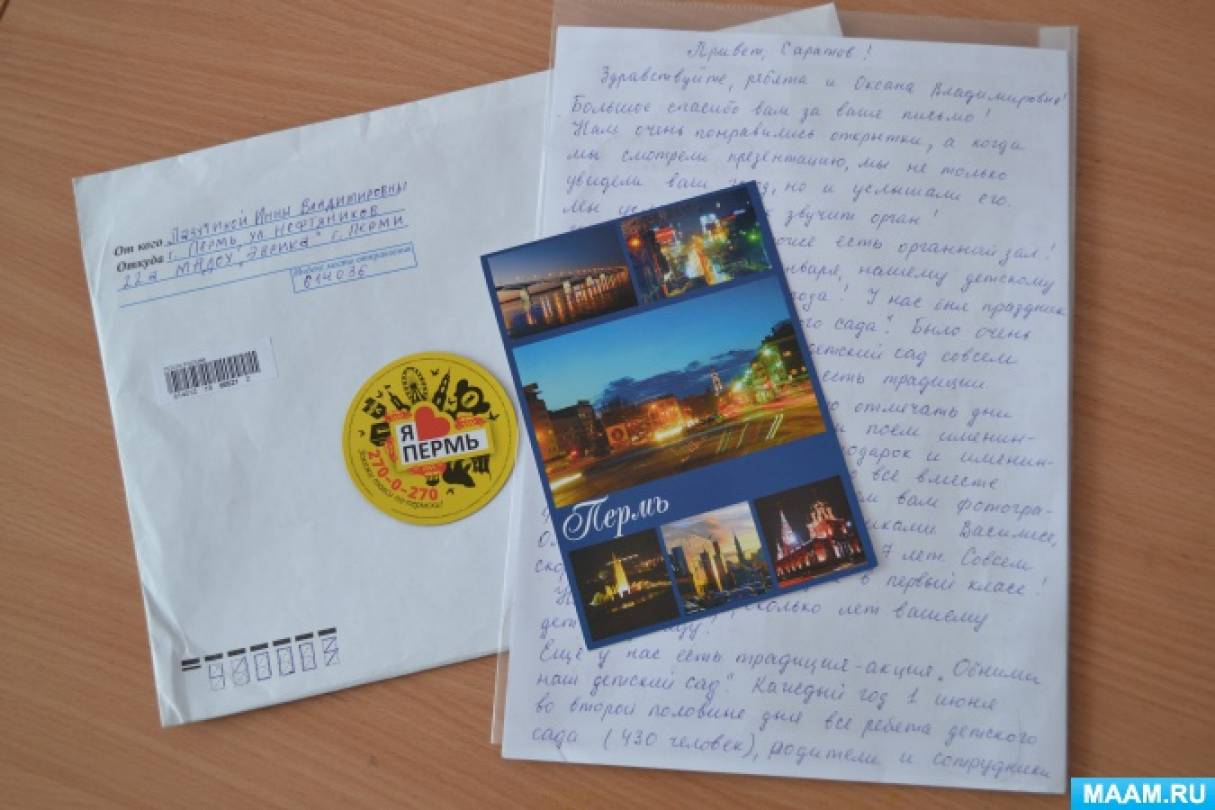 От кого Лазутиной Инны Владимировны
Откуда г. Пермь, ул. Нефтяников
22а МАДОУ „Эврика" г. Перми
Индекс места отправления
614036
Я
ПЕРМЬ
270-0-270
Закажи такси по-пермски!
Пермь
Привет, Саратов!
Здравствуйте, ребята и Оксана Владимировна!
Большое спасибо вам за ваше письмо!
Нам очень понравились открытки, а когда
мы смотрели презентацию, мы не только
увидели ваш но и услышали его.
Мы звучит орган!
есть органный зал!
января, нашему детскому
У нас был праздник
сада". Было очень
детский сад совсем
есть традиции.
отмечать дни
поём именин-
подарок и именин-
все вместе
вам фотогра-
Василисе,
7 лет. Совсем
в первый класс!
сколько лет вашему
Ещё у нас есть традиция-акция „Обними
наш детский сад". Каждый год 1 июня
во второй половине дня все ребята детского
сада (430 человек), родители и сотрудники
MAAM.RU